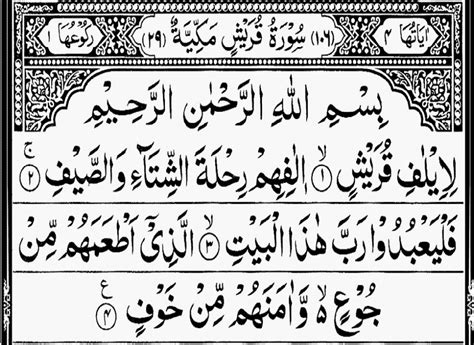 اٰيَاتُهَا ٤ (١٠٦) سُوْرَةُ قُرَيْشٍ مَكِّيَّةٌ (٢٩) رُكُوْعُهَا ١
بِسْمِ اللهِ الرَّحْمٰنِ الرَّحِيْمِ
لِاِيْلٰفِ قُرَيْشٍ ۙ﴿١﴾ اٖلٰفِهِمْ رِحْلَةَ الشِّتَآءِ وَالصَّيْفِ ۚ﴿٢﴾
فَلْيَعْبُدُوْا رَبَّ هٰذَا الْبَيْتِ ۙ﴿٣﴾ الَّذِيْٓ اَطْعَمَهُمْ مِّنْ
جُوْعٍ ۵ۙ وَّاٰمَنَهُمْ مِّنْ خَوْفٍ ﴿٤﴾ ع